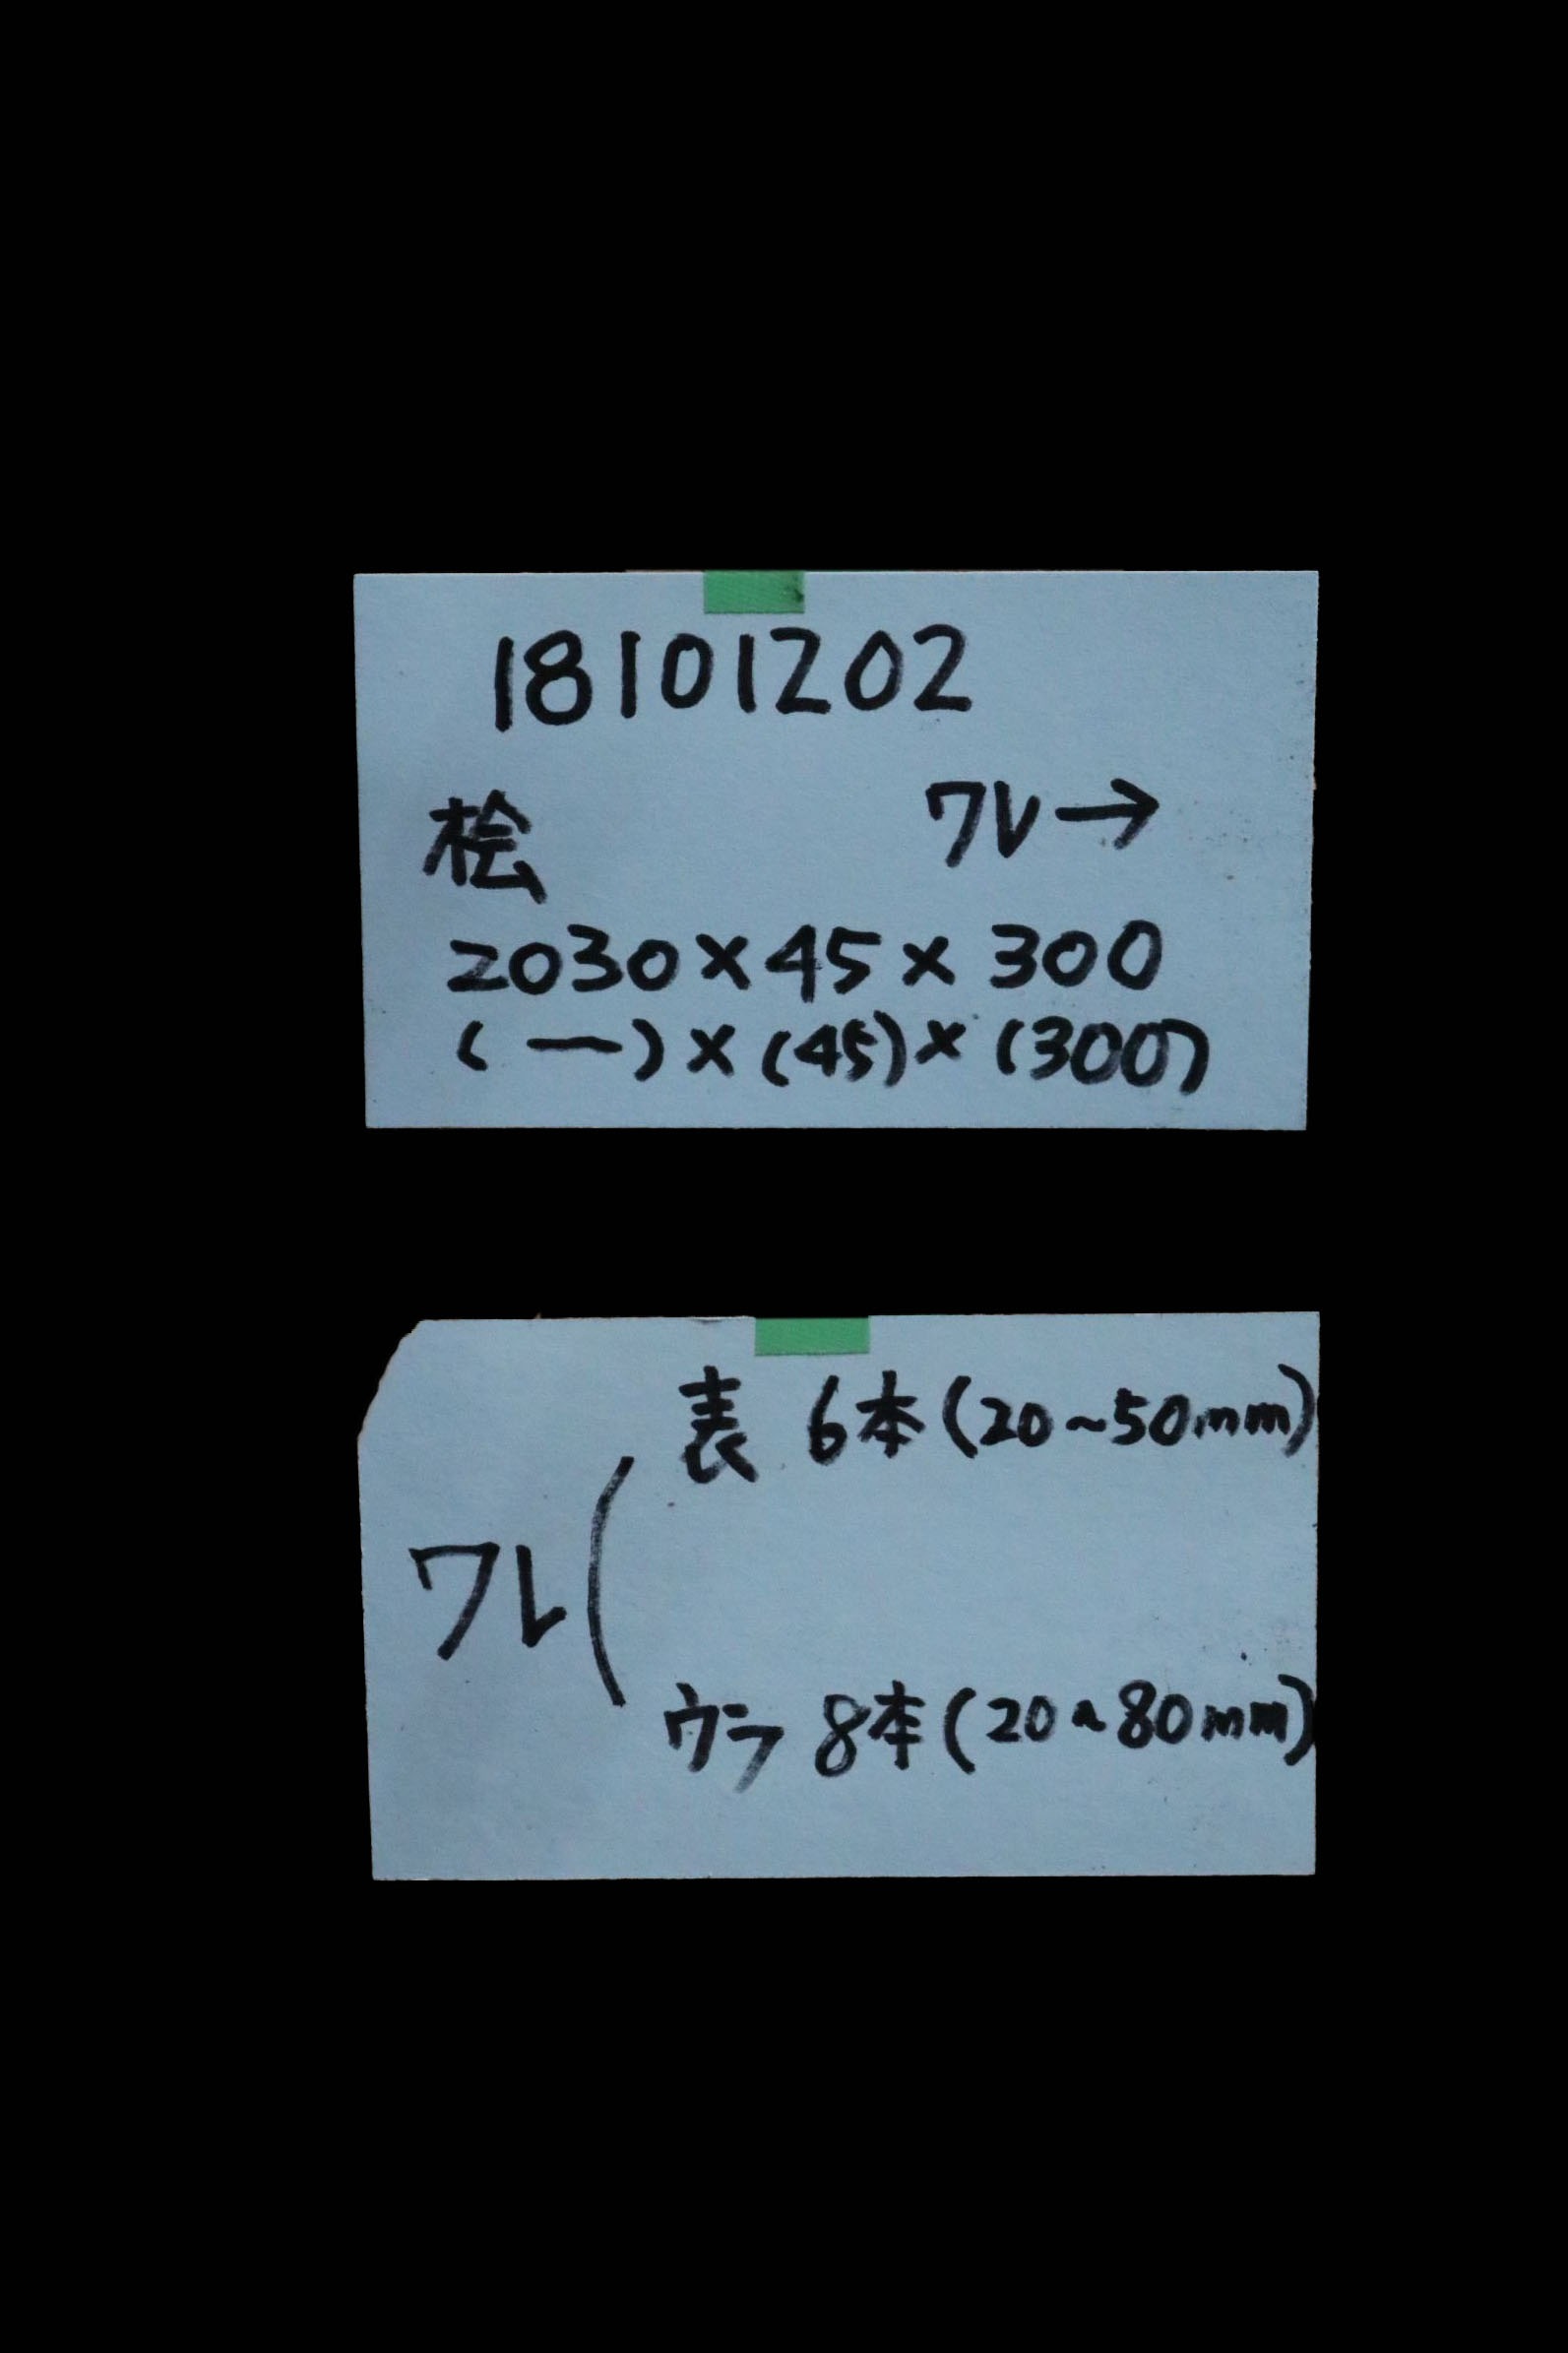 18101202
桧 ワレ→
2030×45×300
(ー)×(45)×(300)
表 6本(20~50mm)
ワレ(
ウラ 8本(20~80mm)